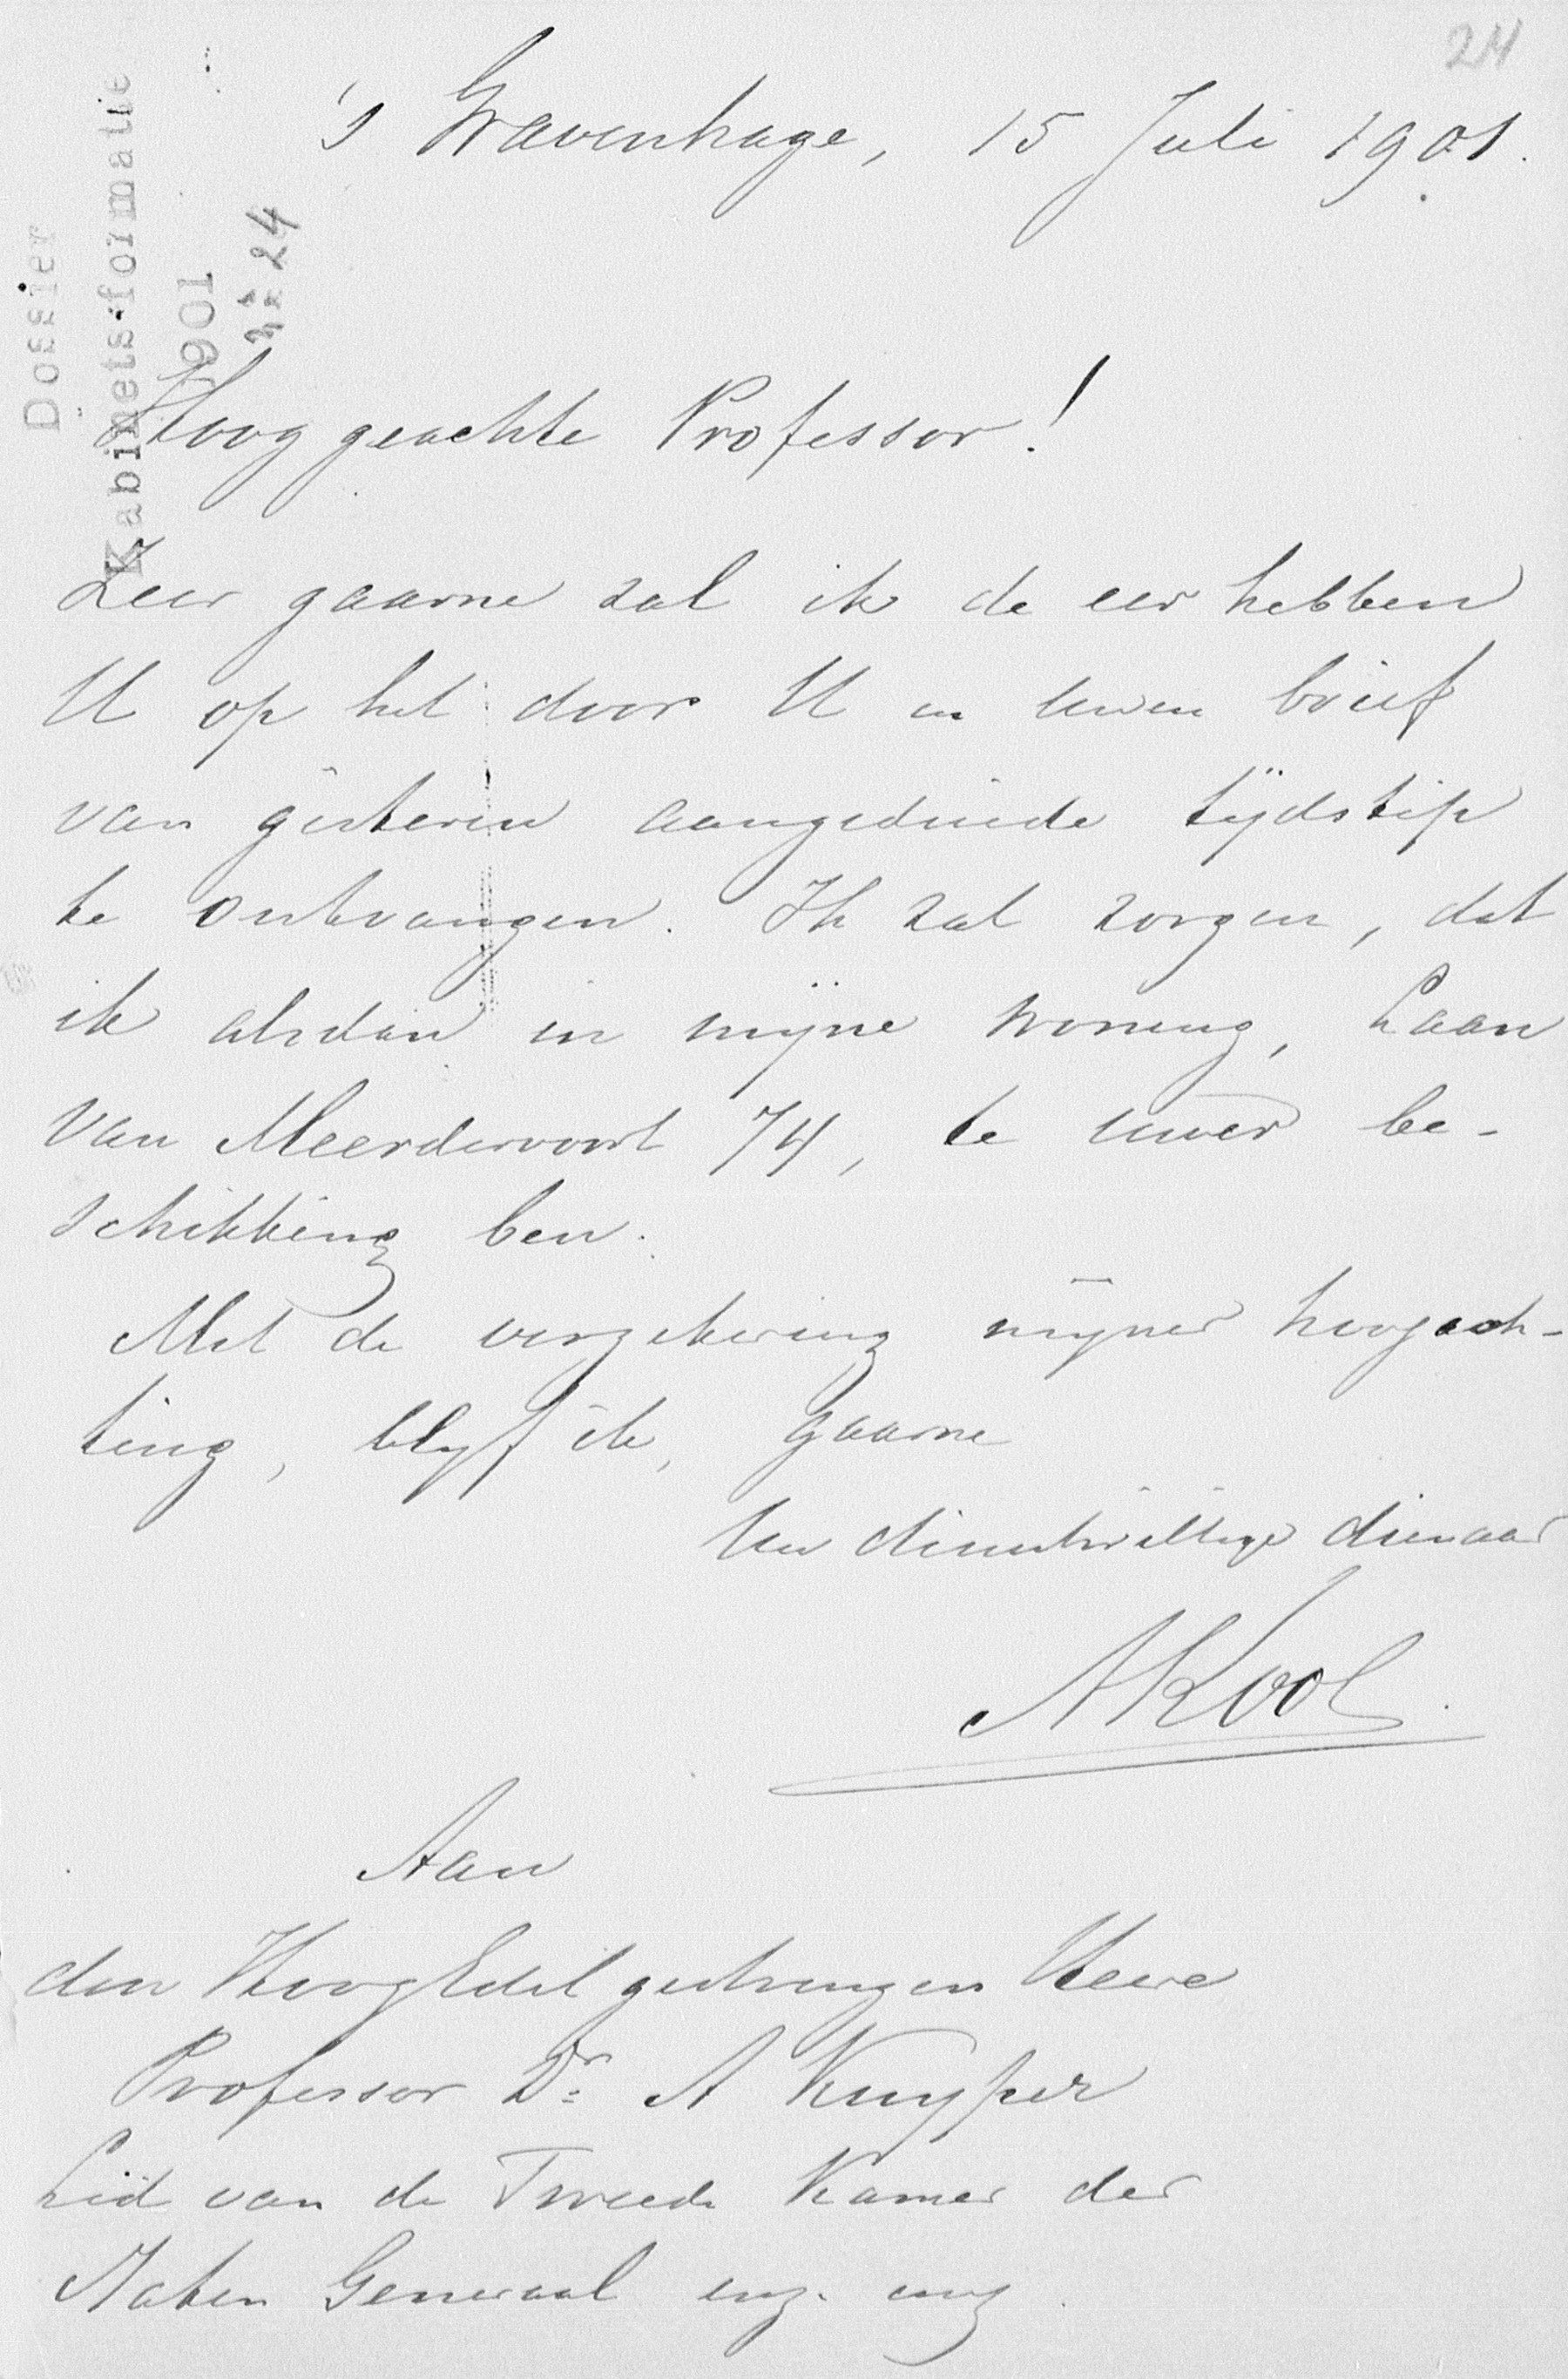 24
's Gravenhage, 15 Juli 1901.
Dossier
Kabinets-formatie
1901
No 24
Hooggeachte Professor!
Zeer gaarne zal ik de eer hebben
U op het door U in Uwen brief
van gisteren aangeduide tijdstip
te ontvangen. Ik zal zorgen, dat
ik alsdan in mijne woning, Laan
van Meerdervoort 74, te Uwer be-
schikking ben.
Met de verzekering mijner hoogach-
ting, blijf ik, gaarne
Uw dienstwillige dienaar
AKool
Aan
den HoogEdelgestrengen Heere
Professor Dr A Kuyper
Lid van de Tweede Kamer der
Staten Generaal enz. enz.